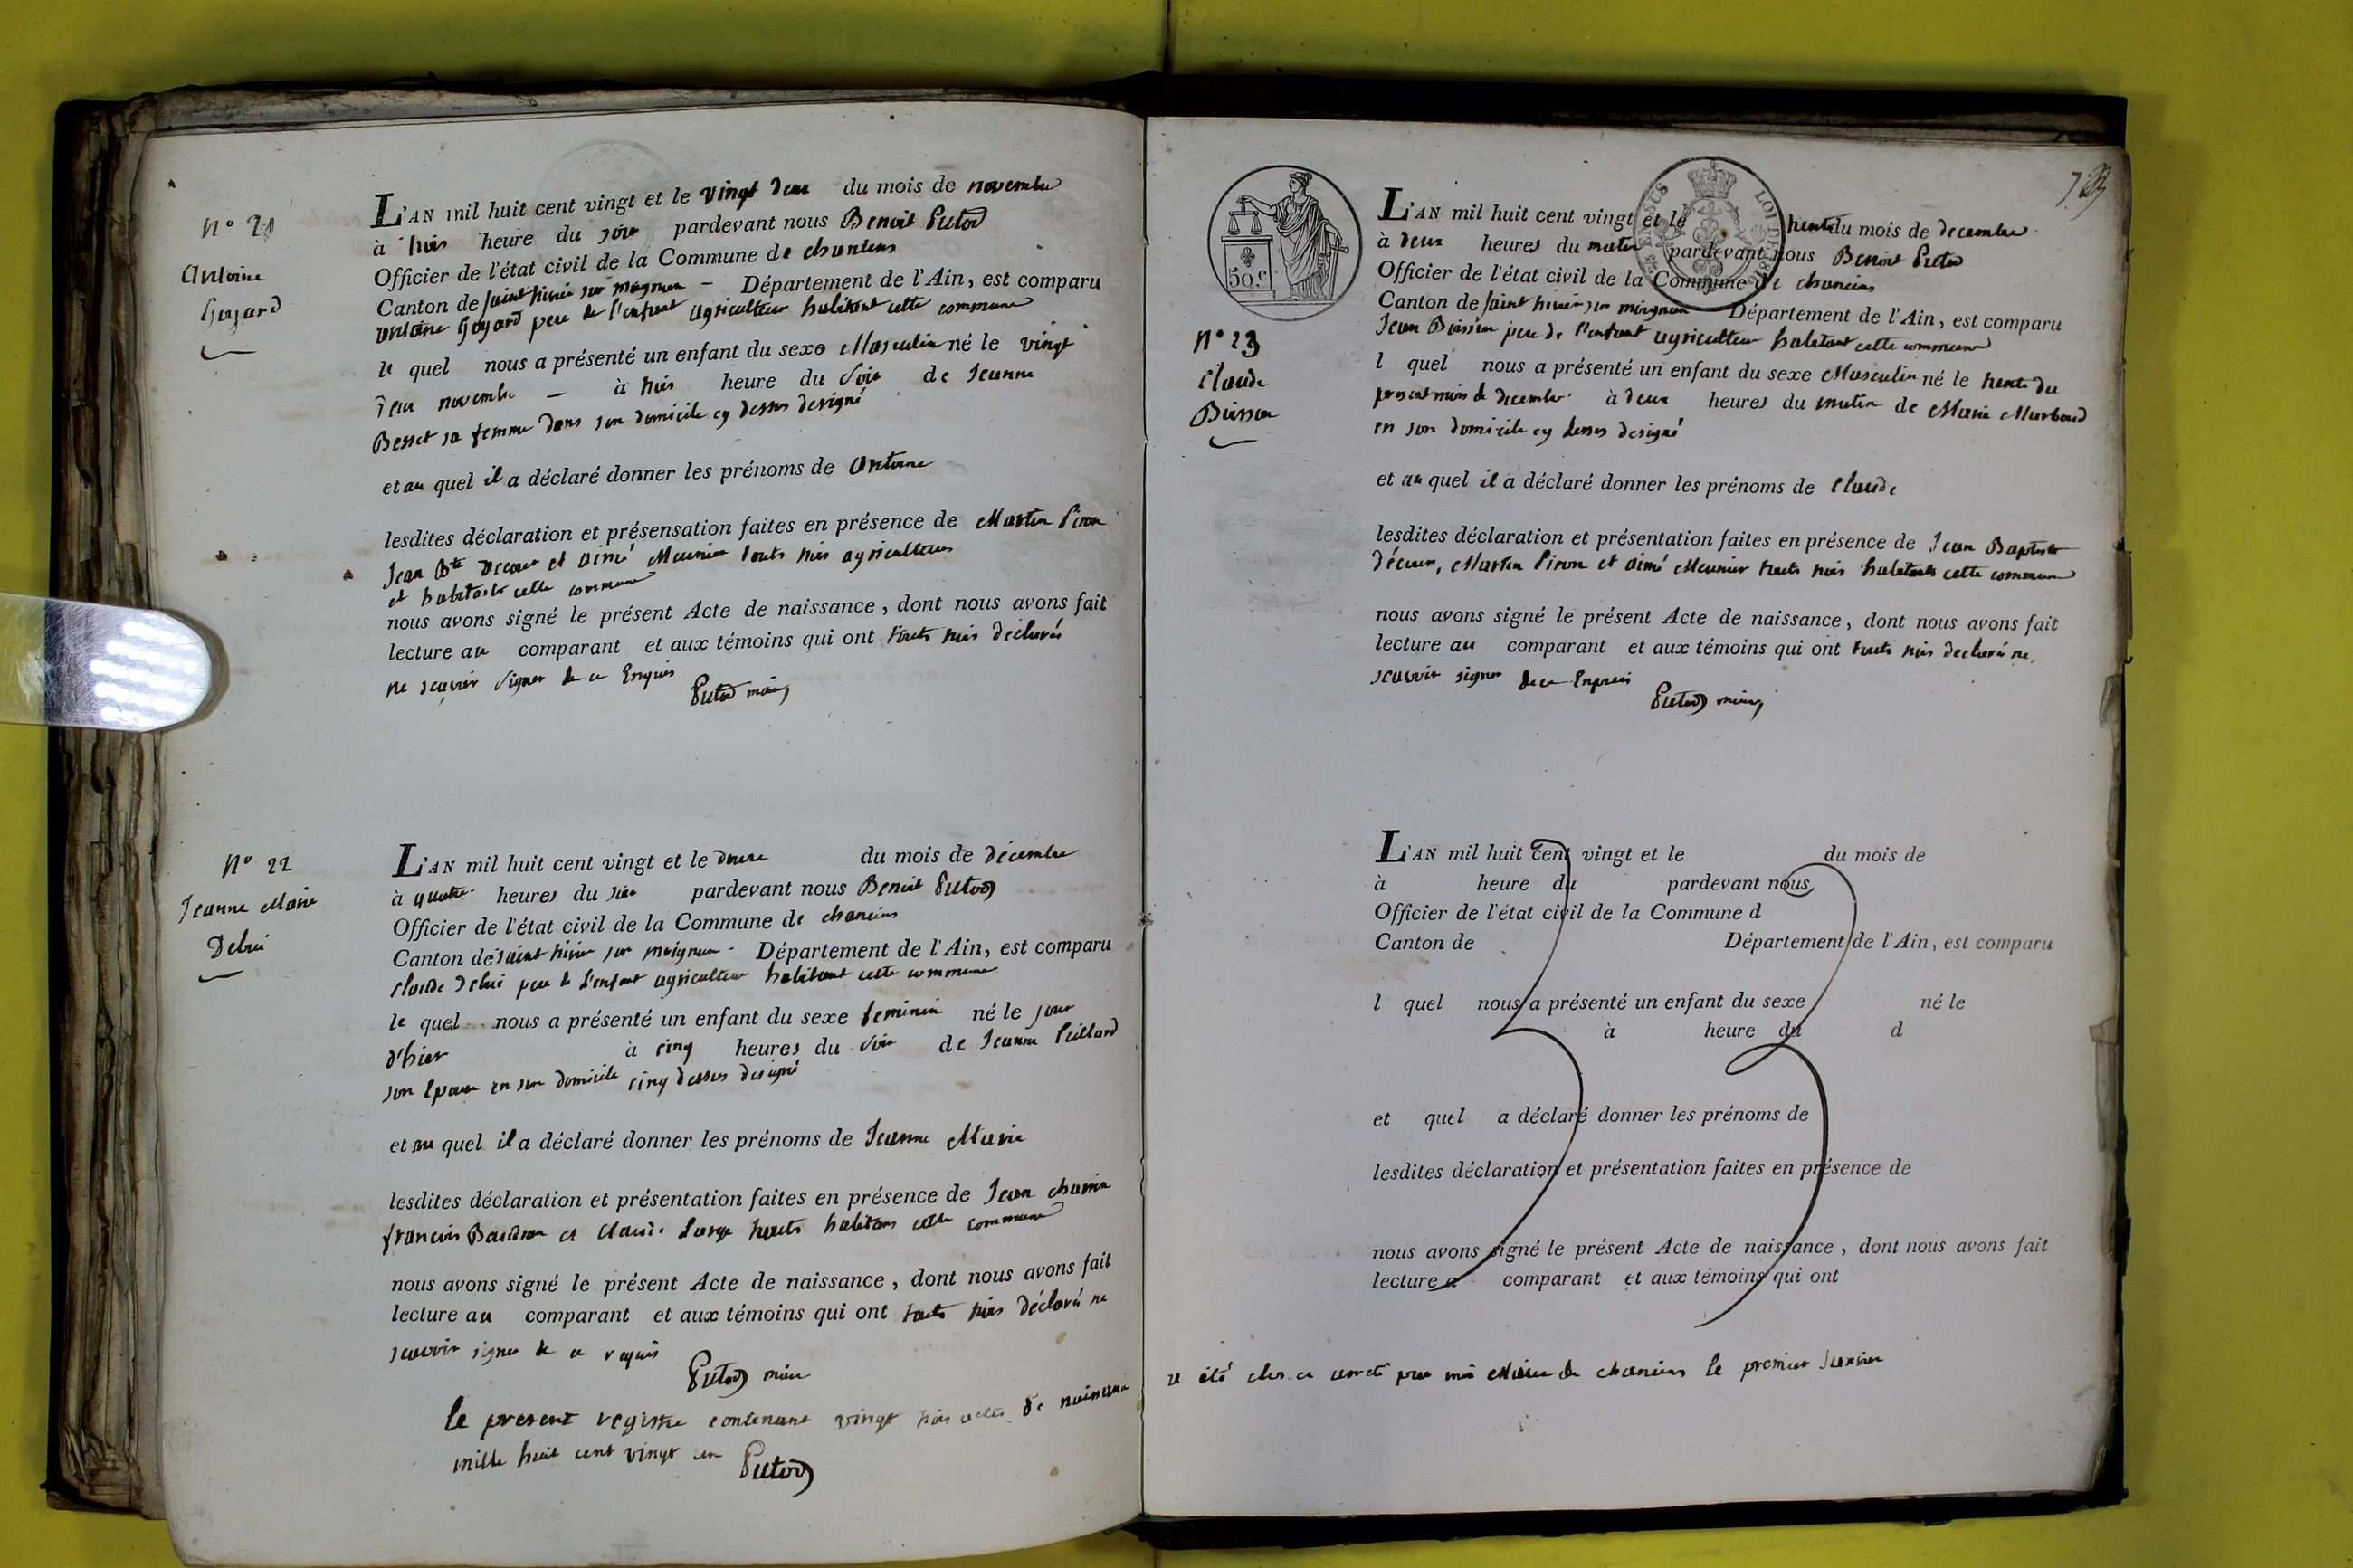 N° 21
Antoine
Goyard
L'AN mil huit cent vingt et le vingt deux du mois de novembre
à trois heure du soir pardevant nous Benoit Putod
Officier de l'état civil de la Commune de chaneins
Canton de saint trivier sur moignan - Département de l'Ain, est comparu
antoine Goyard pere de l'enfant agriculteur habitant cette commune
le quel nous a présenté un enfant du sexe Masculin né le vingt
deux novembre - à trois heure du soir de Jeanne
Besset sa femme dans son domicile cy dessus designé
et au quel il a déclaré donner les prénoms de antoine
lesdites déclaration et présensation faites en présence de Martin Piron
Jean Bte Decoeur et aimé Meunier touts trois agriculteurs
et habitants cette commune
nous avons signé le présent Acte de naissance, dont nous avons fait
lecture au comparant et aux témoins qui ont touts trois declarés
ne scavoir signer de ce Enquis
Putod maire
N° 22
Jeanne Marie
Debui
L'AN mil huit cent vingt et le douze du mois de décembre
à quatre heures du soir pardevant nous Benoit Putod
Officier de l'état civil de la Commune de chaneins
Canton de saint trivier sur moignan - Département de l'Ain, est comparu
claude debui pere de l'enfant agriculteur habitant cette commune
le quel nous a présenté un enfant du sexe feminin né le jour
d'hier à cinq heures du soir de Jeanne Peillard
son Epouse en son domicile cinq dessus designé
et au quel il a déclaré donner les prénoms de Jeanne Marie
lesdites déclaration et présentation faites en présence de Jean chanin
françois Baudron et claude Large touts habitans cette commune
nous avons signé le présent Acte de naissance, dont nous avons fait
lecture au comparant et aux témoins qui ont touts trois déclaré ne
scavoir signer de ce requis
Putod maire
le present registre contenant vingt trois actes de naissance
mille huit cent vingt un Putod
50.c
N° 23
claude
Buisson
L'AN mil huit cent vingt et le trente du mois de decembre
à deux heures du matin pardevant nous Benoit Putod
Officier de l'état civil de la Commune de chaneins
Canton de saint trivier sur moignan Département de l'Ain, est comparu
Jean Buisson pere de l'enfant agriculteur habitant cette commune
l quel nous a présenté un enfant du sexe Masculin né le trente du
present mois de decembre à deux heures du matin de Marie Marboud
en son domicile cy dessus designé
et au quel il a déclaré donner les prénoms de claude
lesdites déclaration et présentation faites en présence de Jean Baptiste
décoeur, Martin Piron et aimé Meunier touts trois habitants cette commune
nous avons signé le présent Acte de naissance, dont nous avons fait
lecture au comparant et aux témoins qui ont touts trois declaré ne
scavoir signer de ce Enquis
Putod maire
L'AN mil huit cent vingt et le du mois de
à heure du pardevant nous
Officier de l'état civil de la Commune d
Canton de Département de l'Ain, est comparu
l quel nous a présenté un enfant du sexe né le
à heure du d
et quel a déclaré donner les prénoms de
lesdites déclaration et présentation faites en présence de
nous avons signé le présent Acte de naissance, dont nous avons fait
lecture a comparant et aux témoins qui ont
a été clos et arreté par moi Maire de chaneins le premier Janvier